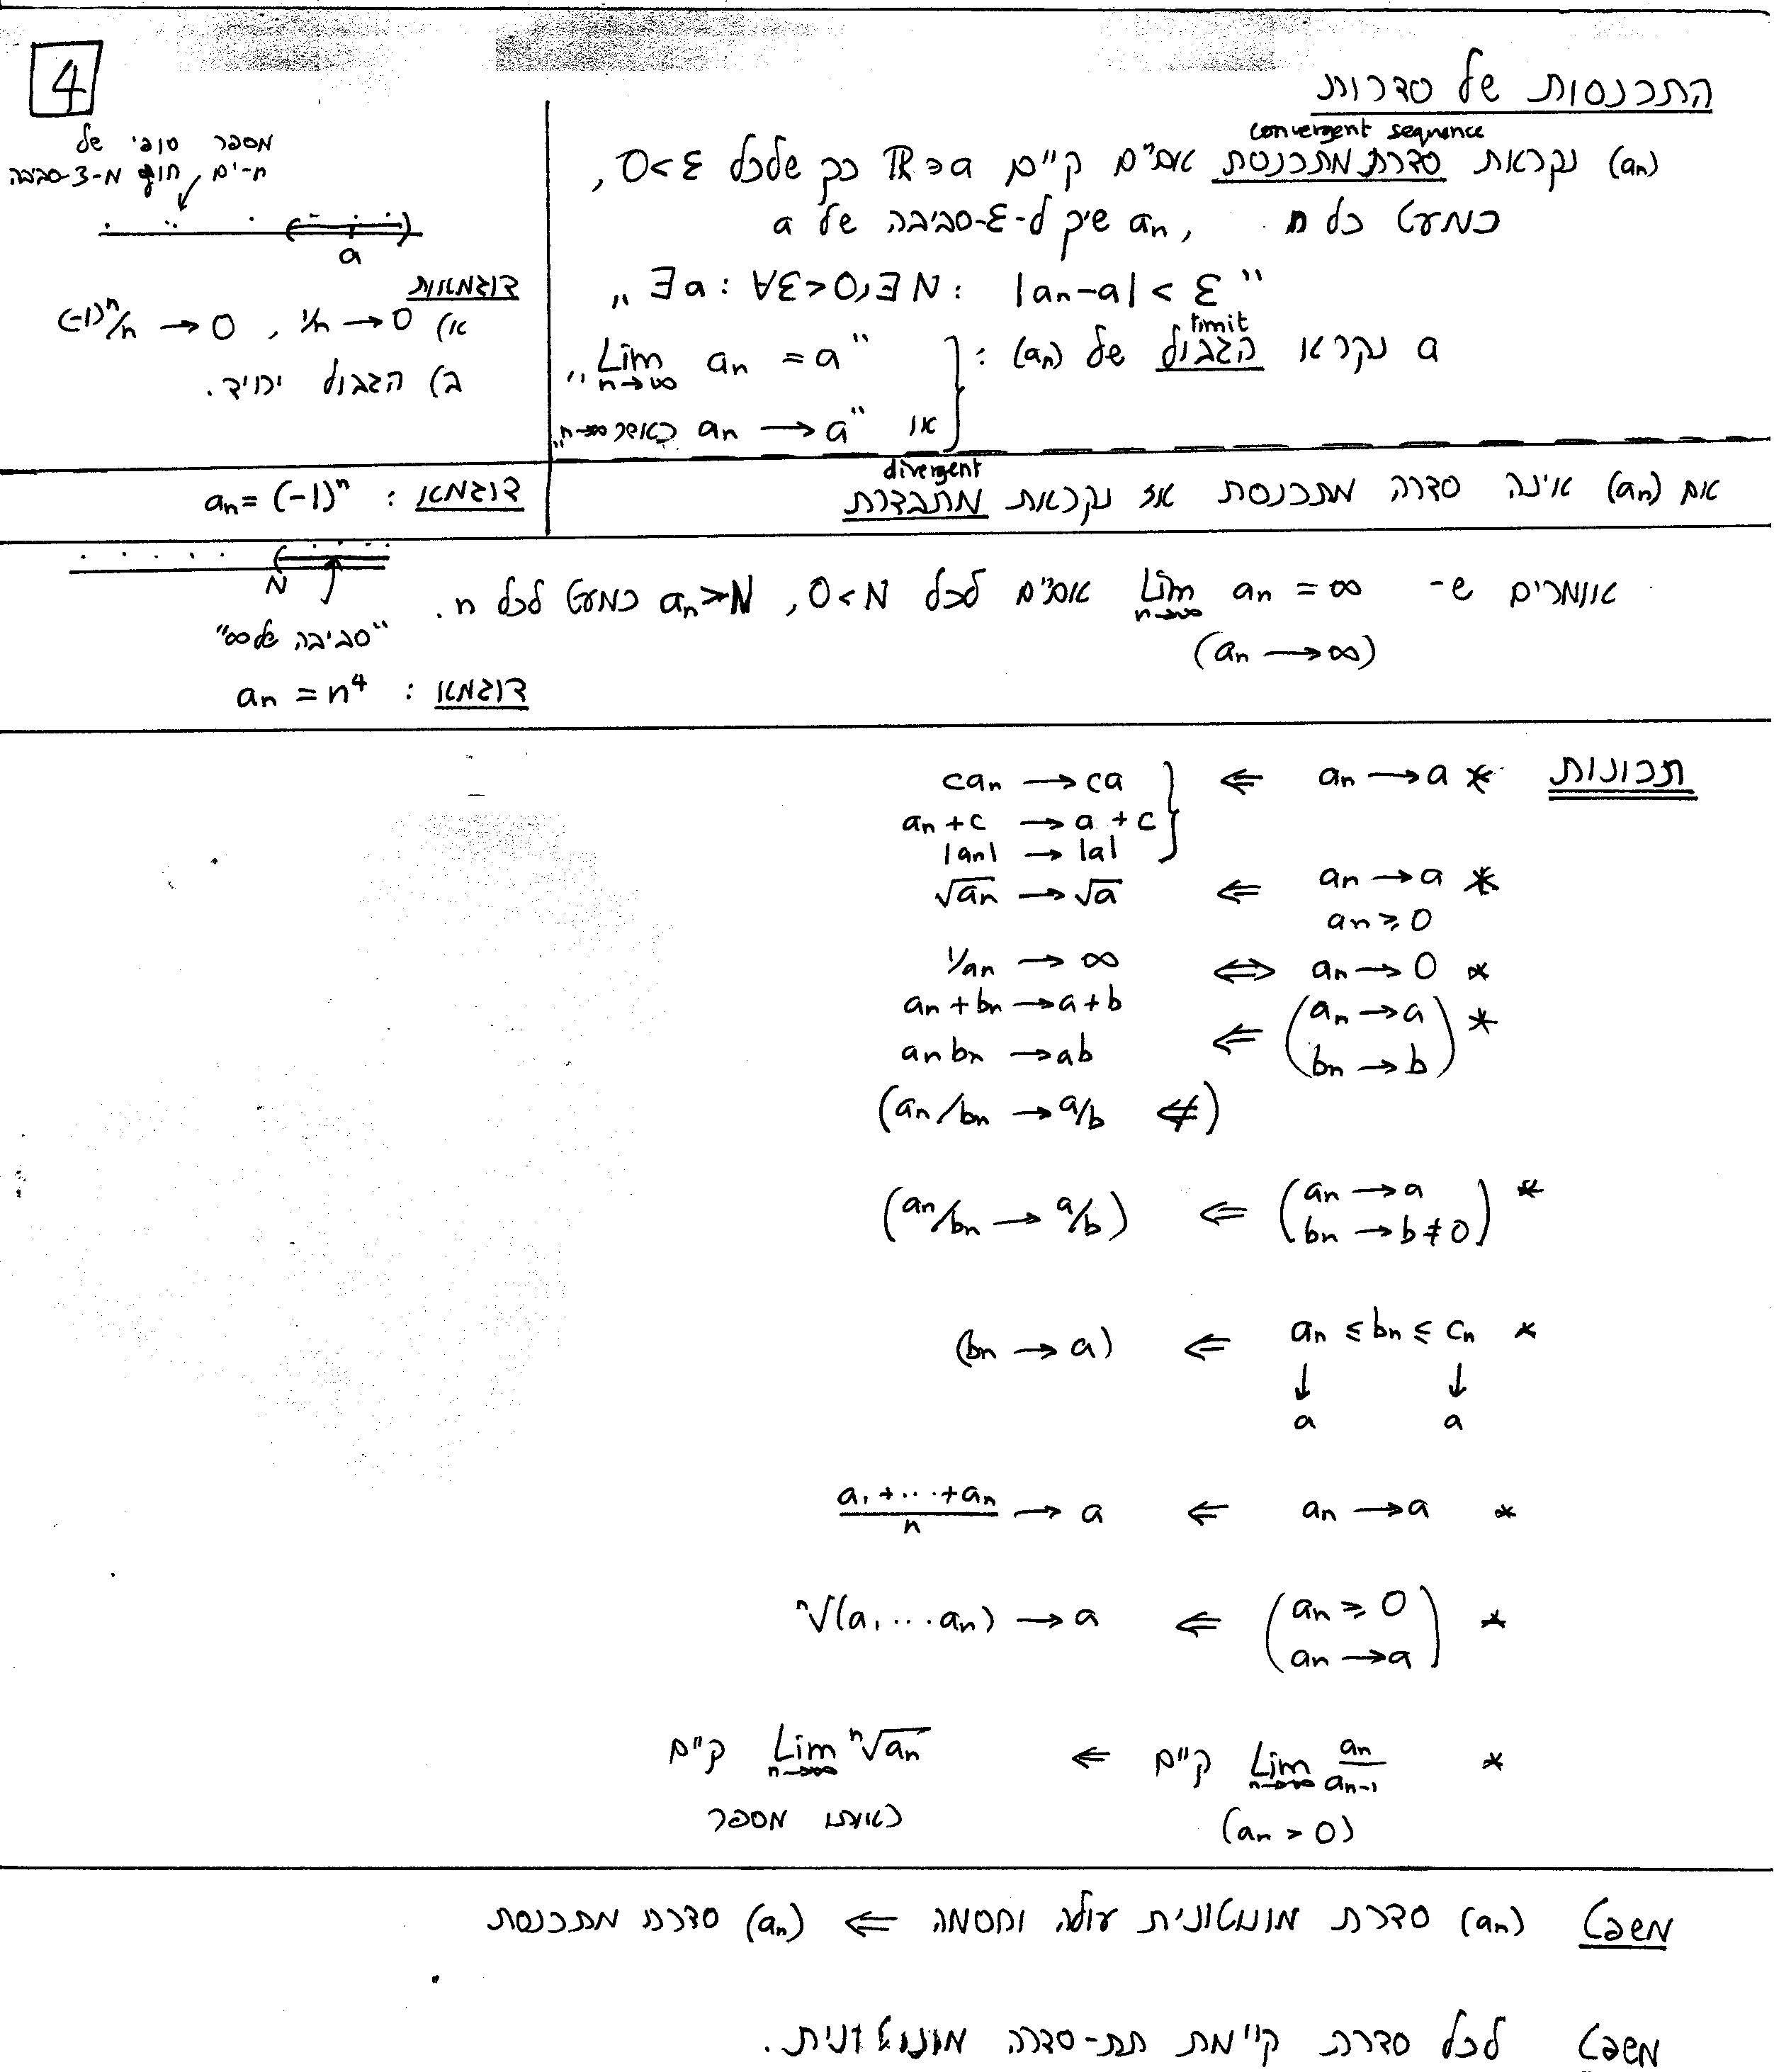 4
התכנסות של סדרות
convergent sequence
(an) נקראת סדרת מתכנסת אם"ם קיים a∈ℝ כך שלכל 0<ε,
כמעט כל n, an שיך ל-ε-סביבה של a
„ ∃a : ∀ε>0, ∃N : |an-a| < ε "
limit
a נקרא הגבול של (an) : „ Lim n→∞ an = a "
או „ an → a כאשר n→∞ "
מספר סופי של
n-ים חוץ מ-ε-סביבה
a
דוגמאות
א) 1/n → 0 , (-1)ⁿ/n → 0
ב) הגבול יחיד.
divergent
אם (an) אינה סדרה מתכנסת אז נקראת מתבדרת
דוגמא : an = (-1)ⁿ
אומרים ש- Lim n→∞ an = ∞ אם"ם לכל 0<N, an>N כמעט לכל n.
(an → ∞)
N
"סביבה של ∞"
דוגמא : an = n⁴
תכונות * an → a ⇐ can → ca
an + c → a + c
|an| → |a|
* an → a ⇐ √an → √a
an ≥ 0
* an → 0 ⇔ 1/an → ∞
* (an → a bn → b) ⇐ an + bn → a + b
an bn → ab
(an/bn → a/b ⇍)
* (an → a bn → b ≠ 0) ⇐ (an/bn → a/b)
* an ≤ bn ≤ cn ⇐ (bn → a)
↓ ↓
a a
* an → a ⇐ (a₁ + ··· + an)/n → a
* (an ≥ 0 an → a) ⇐ ⁿ√(a₁ ··· an) → a
* קיים Lim n→∞ an/an-1 ⇐ קיים Lim n→∞ ⁿ√an
(an > 0) כאותו מספר
משפט (an) סדרת מונוטונית עולה וחסמה ⇐ (an) סדרת מתכנסת
משפט לכל סדרת קיימת תת-סדרה מונוטונית.